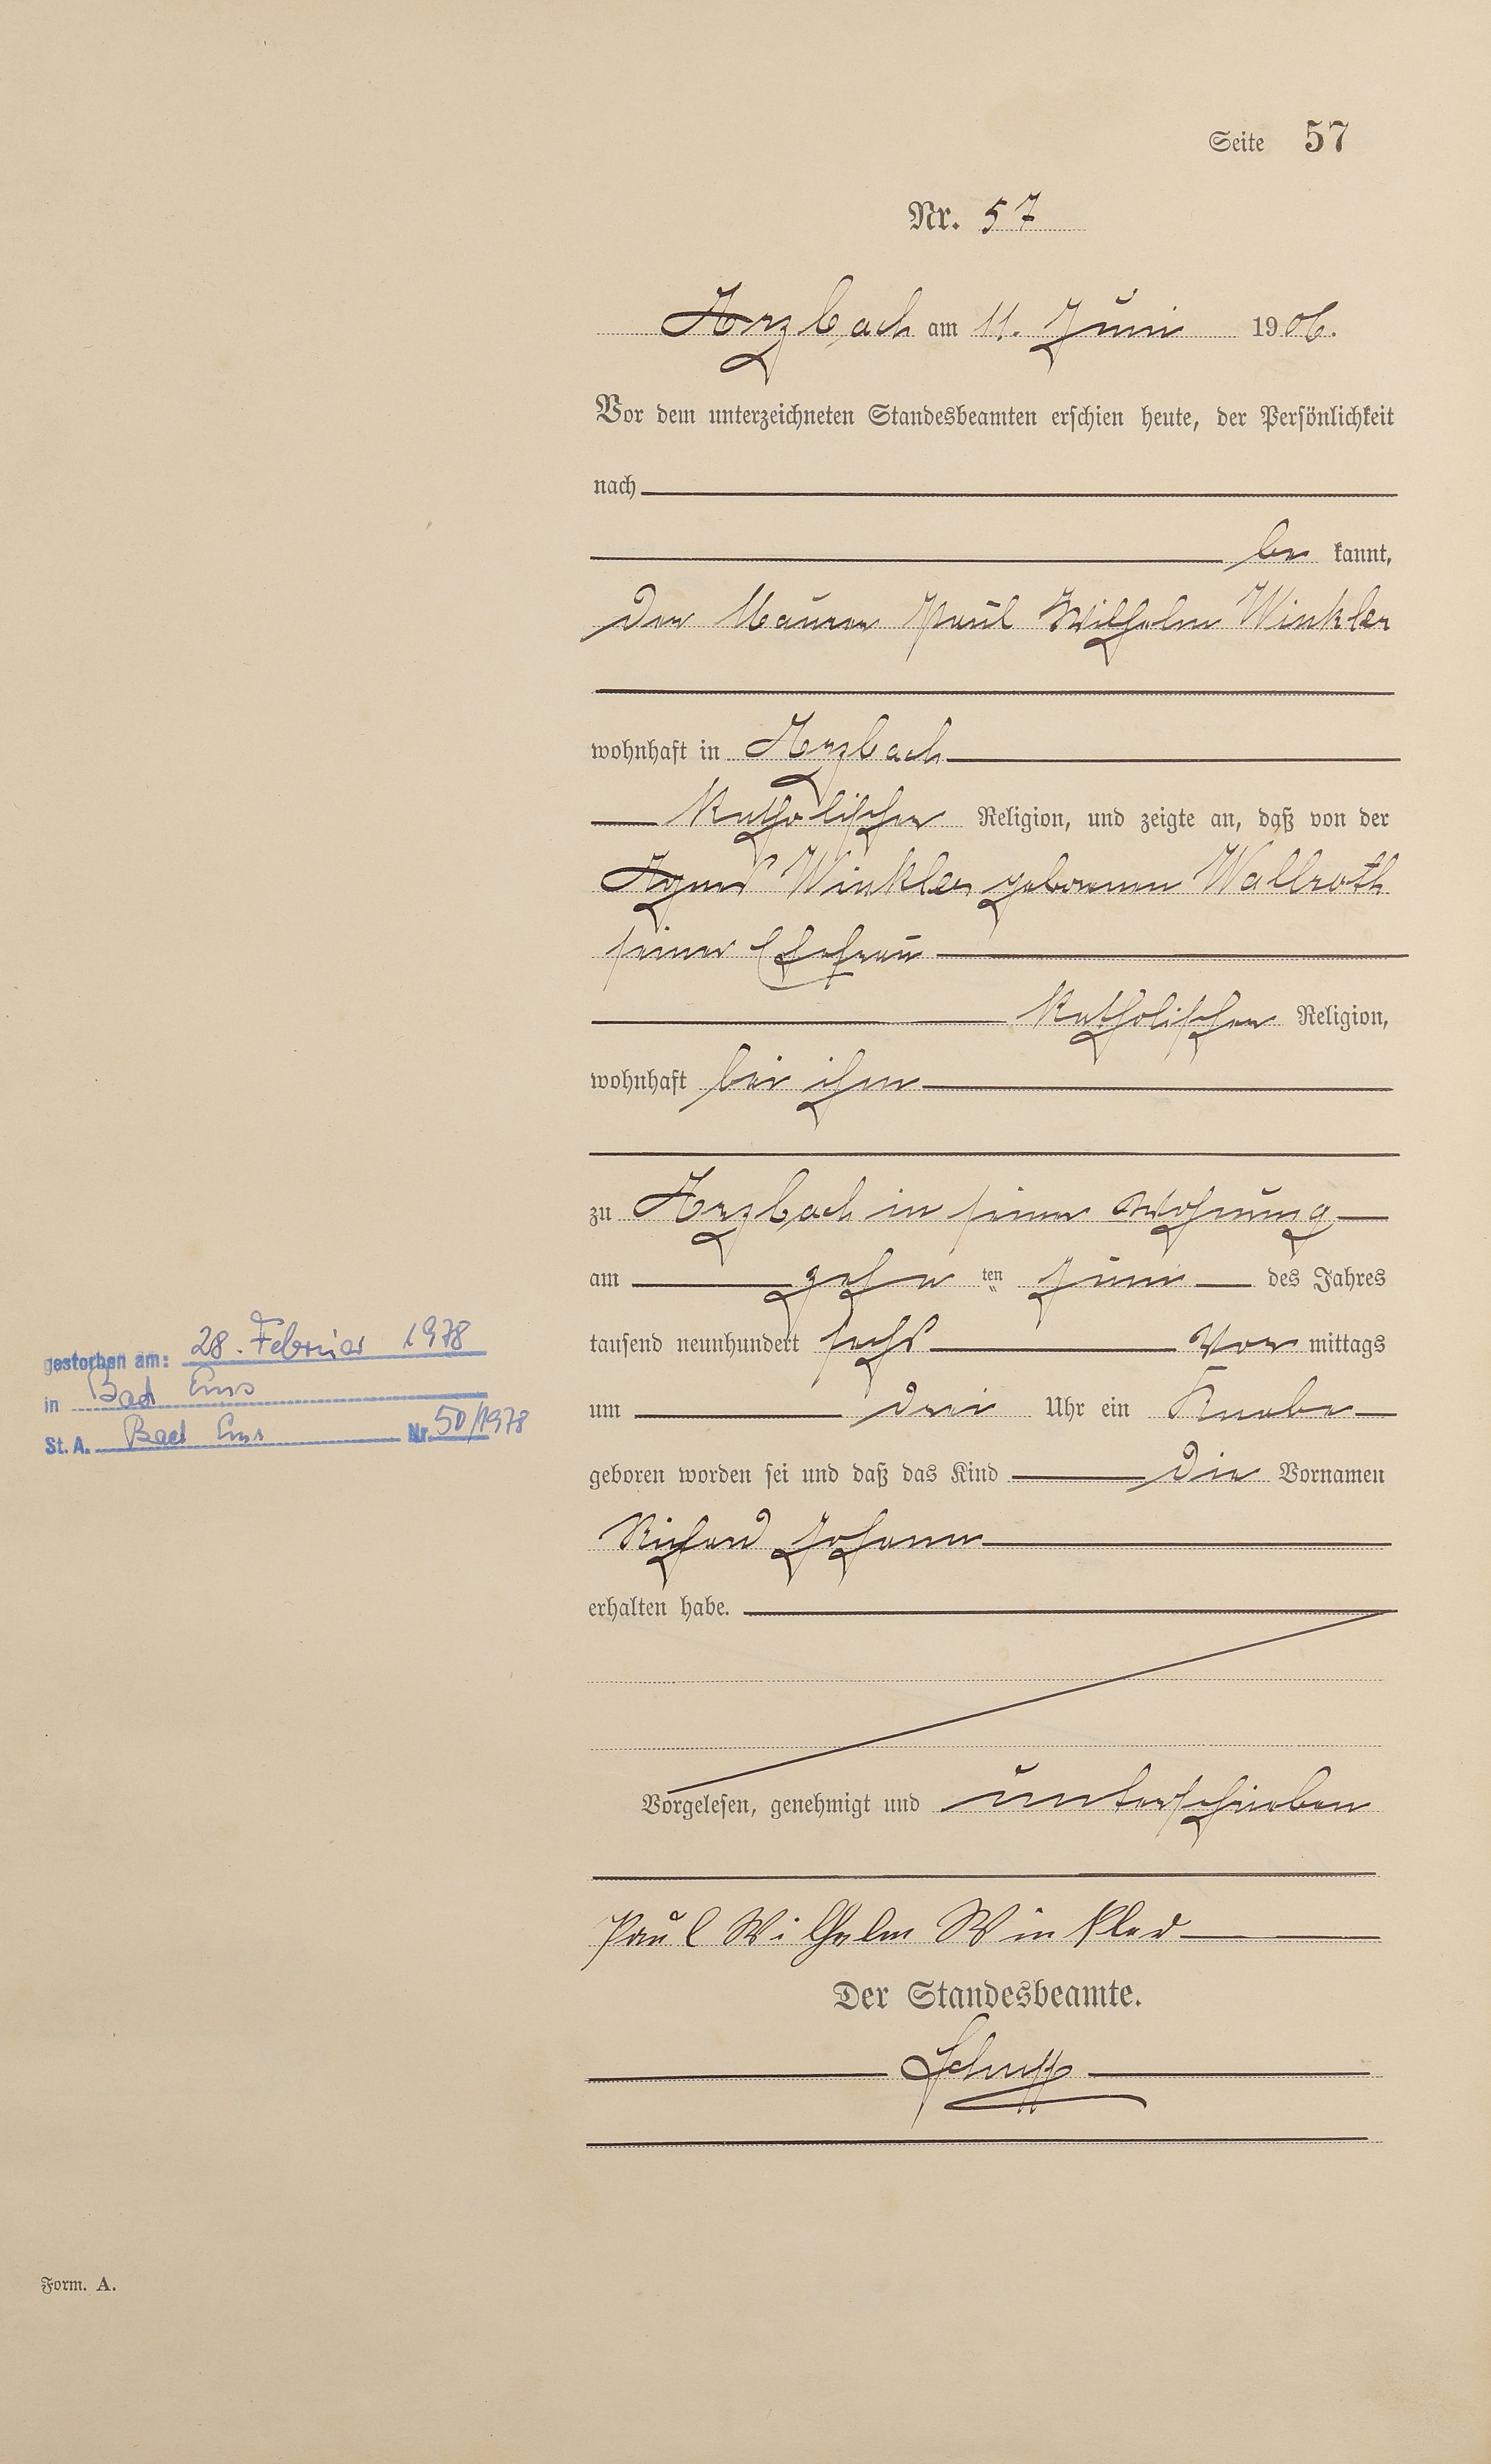 Seite 57
Nr. 57
Arzbach am 11. Juni 1906.
Vor dem unterzeichneten Standesbeamten erschien heute, der Persönlichkeit
nach
be kannt,
der Maurer Paul Wilhelm Winkler
wohnhaft in Arzbach
katholischer Religion, und zeigte an, daß von der
Agnes Winkler geborenen Wallroth
seiner Ehefrau
katholischer Religion,
wohnhaft bei ihm
zu Arzbach in seiner Wohnung
am zehn ten Juni des Jahres
tausend neunhundert sechs Vor mittags
um drei Uhr ein Knabe
geboren worden sei und daß das Kind die Vornamen
Richard Johann
erhalten habe.
Vorgelesen, genehmigt und unterschrieben
Paul Wilhelm Winkler
Der Standesbeamte.
Schupp
gestorben am: 28. Februar 1978
in Bad Ems
St. A. Bad Ems Nr. 50/1978
Form. A.